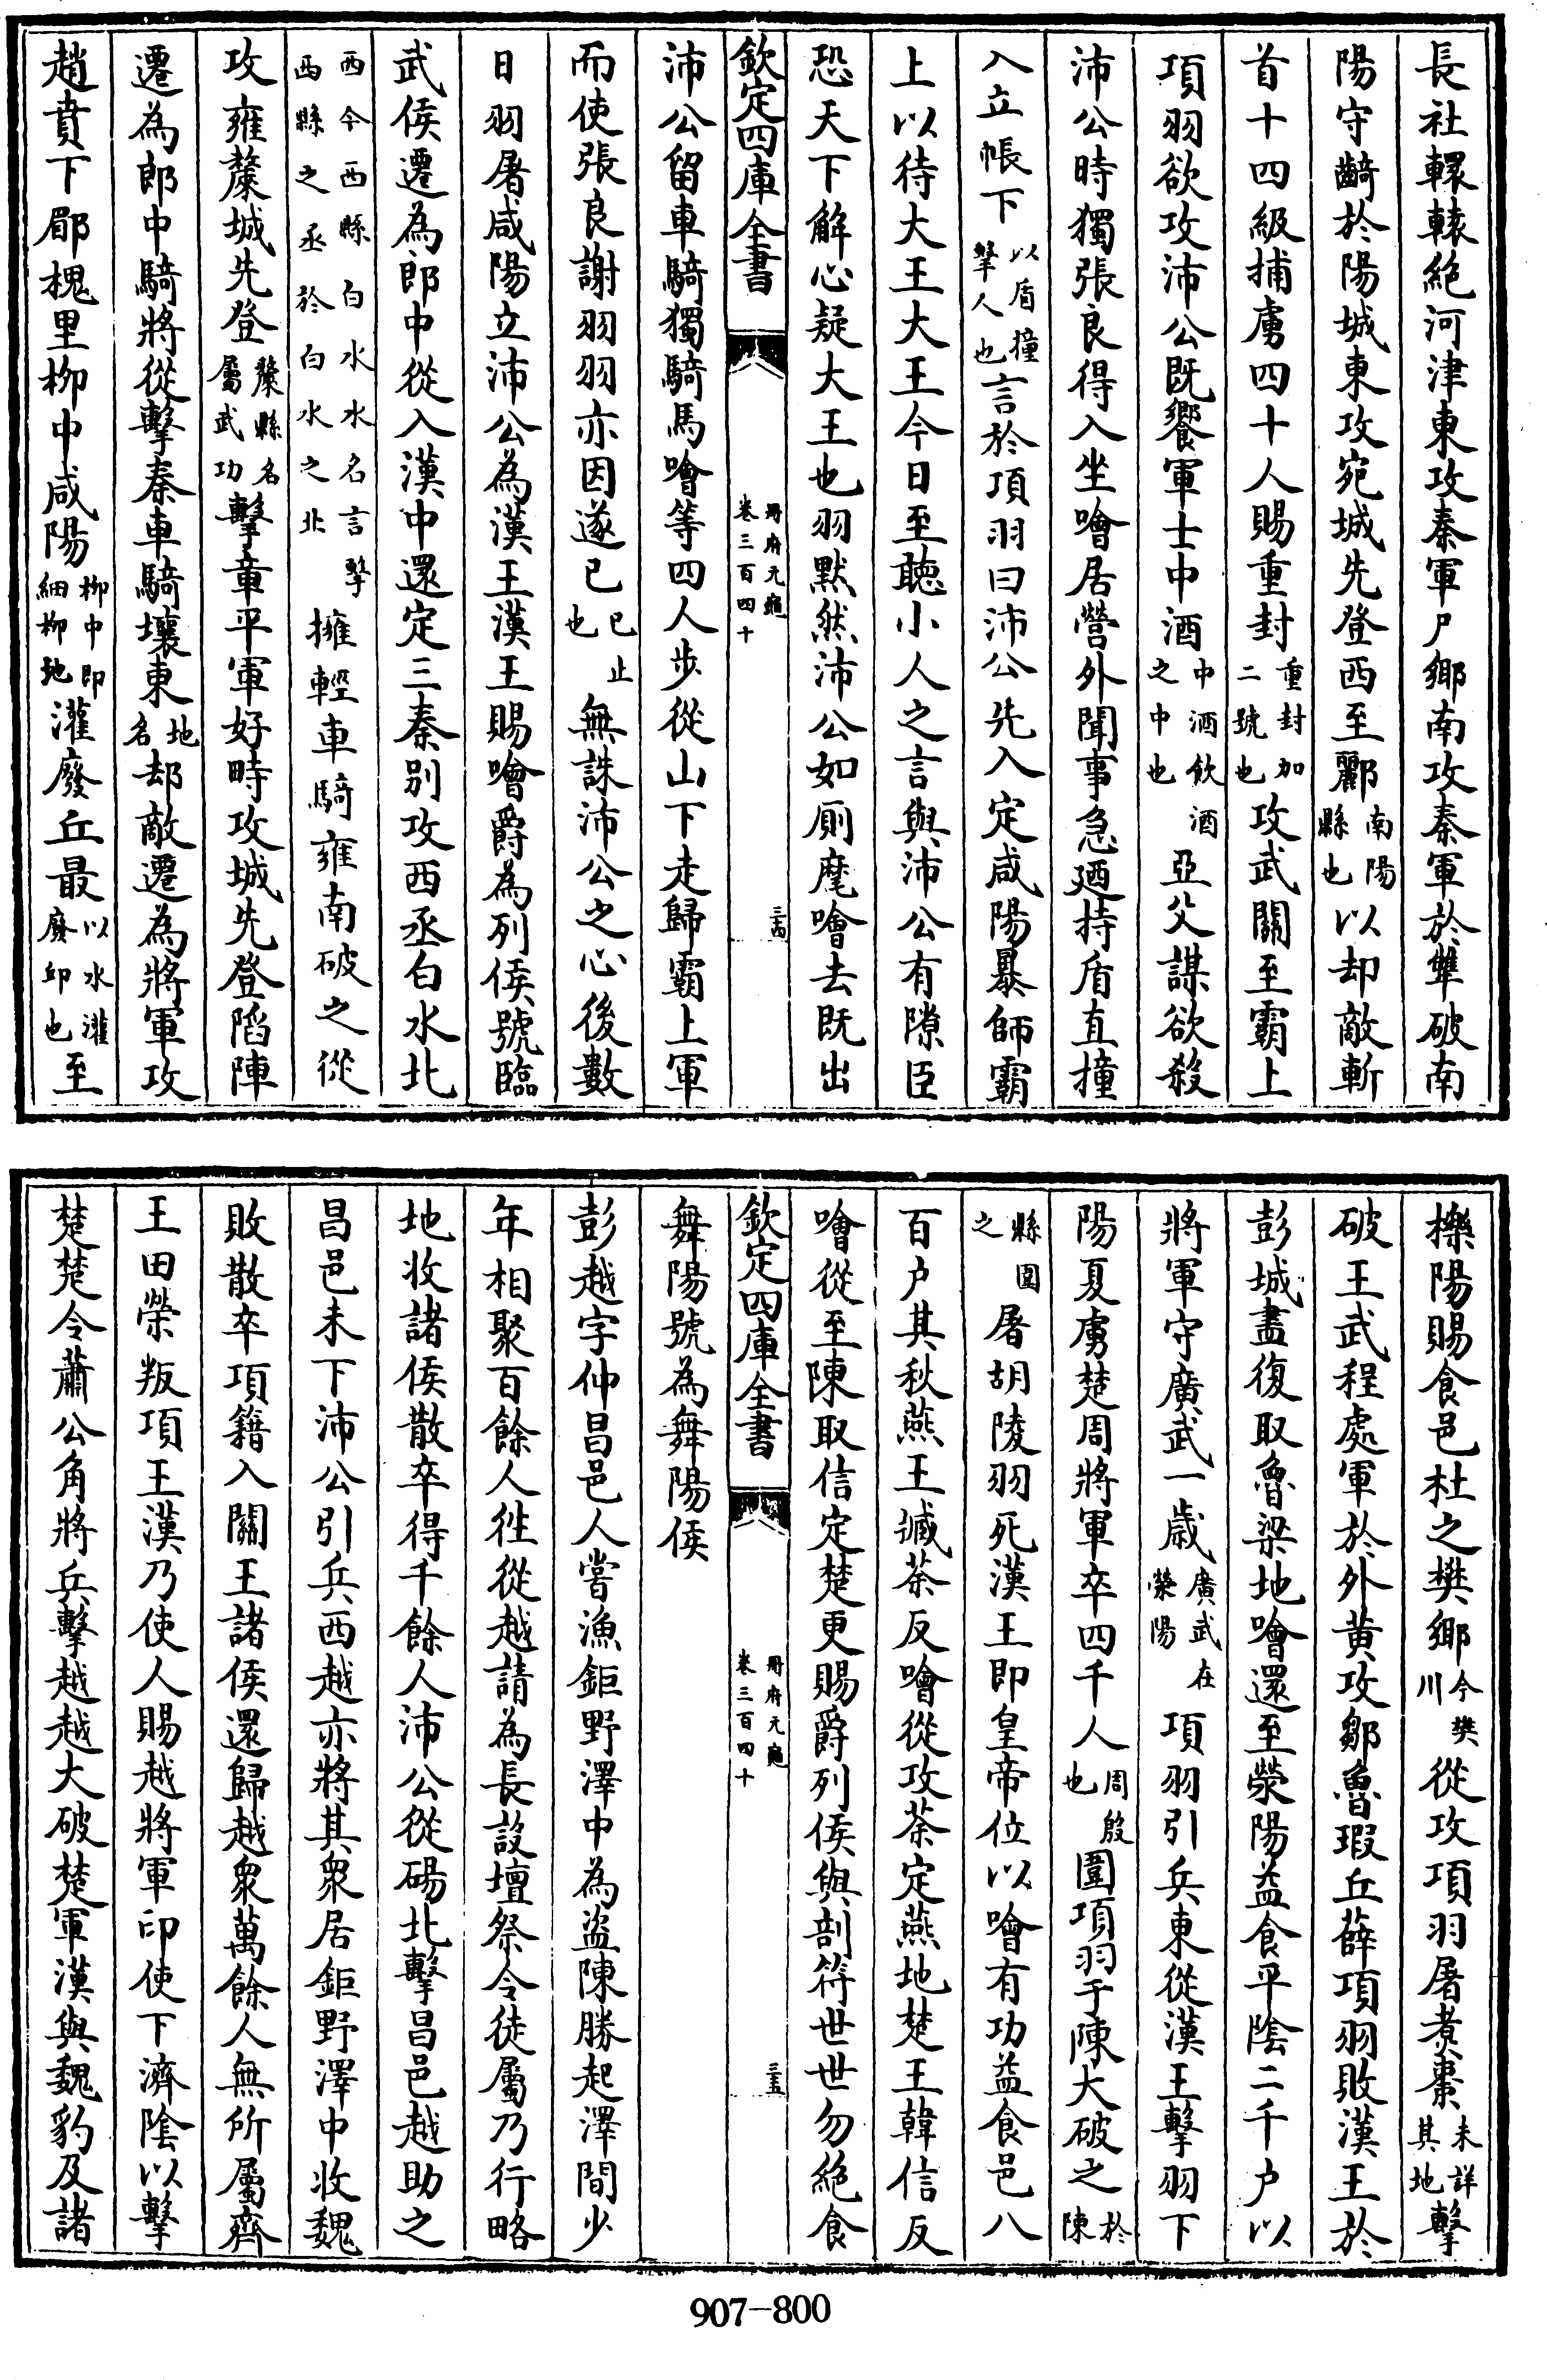 長社轘轅絶河津東攻秦軍尸鄉南攻秦軍於犨破南
陽守齮於陽城東攻宛城先登西至酈南陽縣也以却敵斬
首十四級捕虜四十人賜重封重封加二號也攻武關至霸上
項羽欲攻沛公既饗軍士中酒中酒飲酒之中也亞父謀欲殺
沛公時獨張良得入坐噲居營外聞事急廼持盾直撞
入立帳下以盾撞擊人也言於項羽曰沛公先入定咸陽暴師霸
上以待大王大王今日至聽小人之言與沛公有隙臣
恐天下解心疑大王也羽默然沛公如厠麾噲去既出
欽定四庫全書 冊府元龜卷三百四十 三四
沛公留車騎獨騎馬噲等四人步從山下走歸霸上軍
而使張良謝羽羽亦因遂已已止也無誅沛公之心後數
日羽屠咸陽立沛公為漢王漢王賜噲爵為列侯號臨
武侯遷為郎中從入漢中還定三秦别攻西丞白水北
西今西縣白水水名言擊西縣之丞於白水之北擁輕車騎雍南破之從
攻雍斄城先登斄縣名屬武功擊章平軍好畤攻城先登陷陣
遷為郎中騎將從擊秦車騎壤東地名却敵遷為將軍攻
趙賁下郿槐里柳中咸陽柳中即細柳地灌廢丘最以水灌廢邱也至
櫟陽賜食邑杜之樊鄉今樊川從攻項羽屠煮棗未詳其地擊
破王武程處軍於外黄攻鄒魯瑕丘薛項羽敗漢王於
彭城盡復取魯梁地噲還至滎陽益食平陰二千户以
將軍守廣武一歲廣武在滎陽項羽引兵東從漢王擊羽下
陽夏虜楚周將軍卒四千人周殷也圍項羽于陳大破之於陳
縣圍之屠胡陵羽死漢王即皇帝位以噲有功益食邑八
百户其秋燕王臧荼反噲從攻荼定燕地楚王韓信反
噲從至陳取信定楚更賜爵列侯與剖符世世勿絶食
欽定四庫全書 冊府元龜卷三百四十 三五
舞陽號為舞陽侯
彭越字仲昌邑人嘗漁鉅野澤中為盜陳勝起澤間少
年相聚百餘人徃從越請為長設壇祭令徒屬乃行略
地收諸侯散卒得千餘人沛公從碭北擊昌邑越助之
昌邑未下沛公引兵西越亦將其衆居鉅野澤中收魏
敗散卒項籍入關王諸侯還歸越衆萬餘人無所屬齊
王田榮叛項王漢乃使人賜越將軍印使下濟陰以擊
楚楚令蕭公角將兵擊越越大破楚軍漢與魏豹及諸
907-800